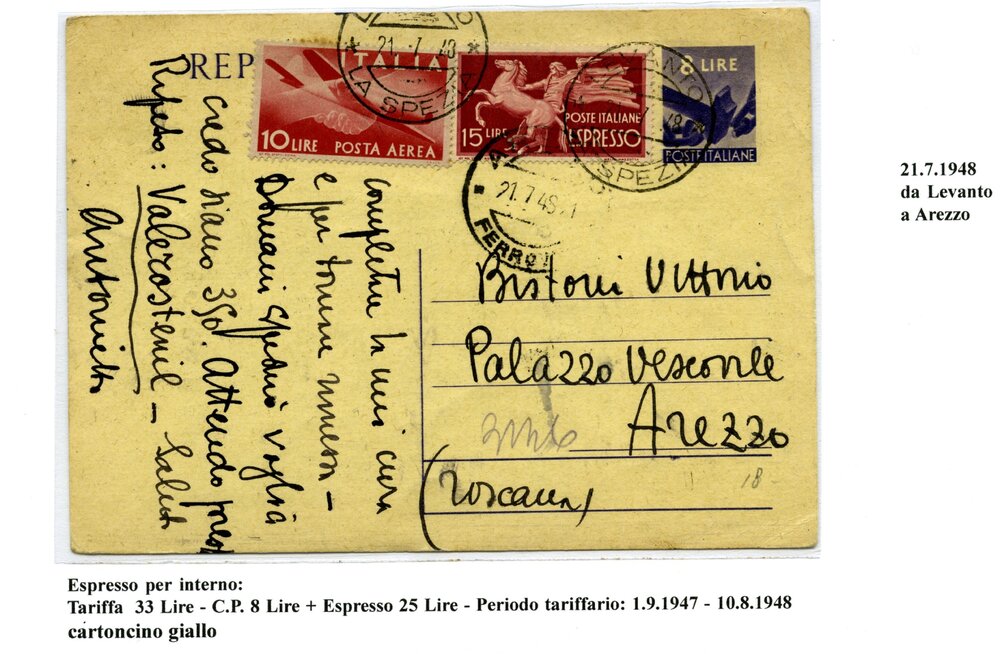 REP
ITALIA
10 LIRE POSTA AEREA
15 LIRE
POSTE ITALIANE
ESPRESSO
8 LIRE
POSTE ITALIANE
21 . 7 48
LA SPEZIA
SPEZIA
21.7 48
FERROV
completare la mia cura
e per tonna
Domani spedirò vaglia
credo siano 350. Attendo
Ripeto: Valerostenil – Saluti
Antonietta
Bistoni Vittorio
Palazzo Vescovile
Arezzo
(Toscana)
18 -
21.7.1948
da Levanto
a Arezzo
Espresso per interno:
Tariffa 33 Lire - C.P. 8 Lire + Espresso 25 Lire - Periodo tariffario: 1.9.1947 - 10.8.1948
cartoncino giallo